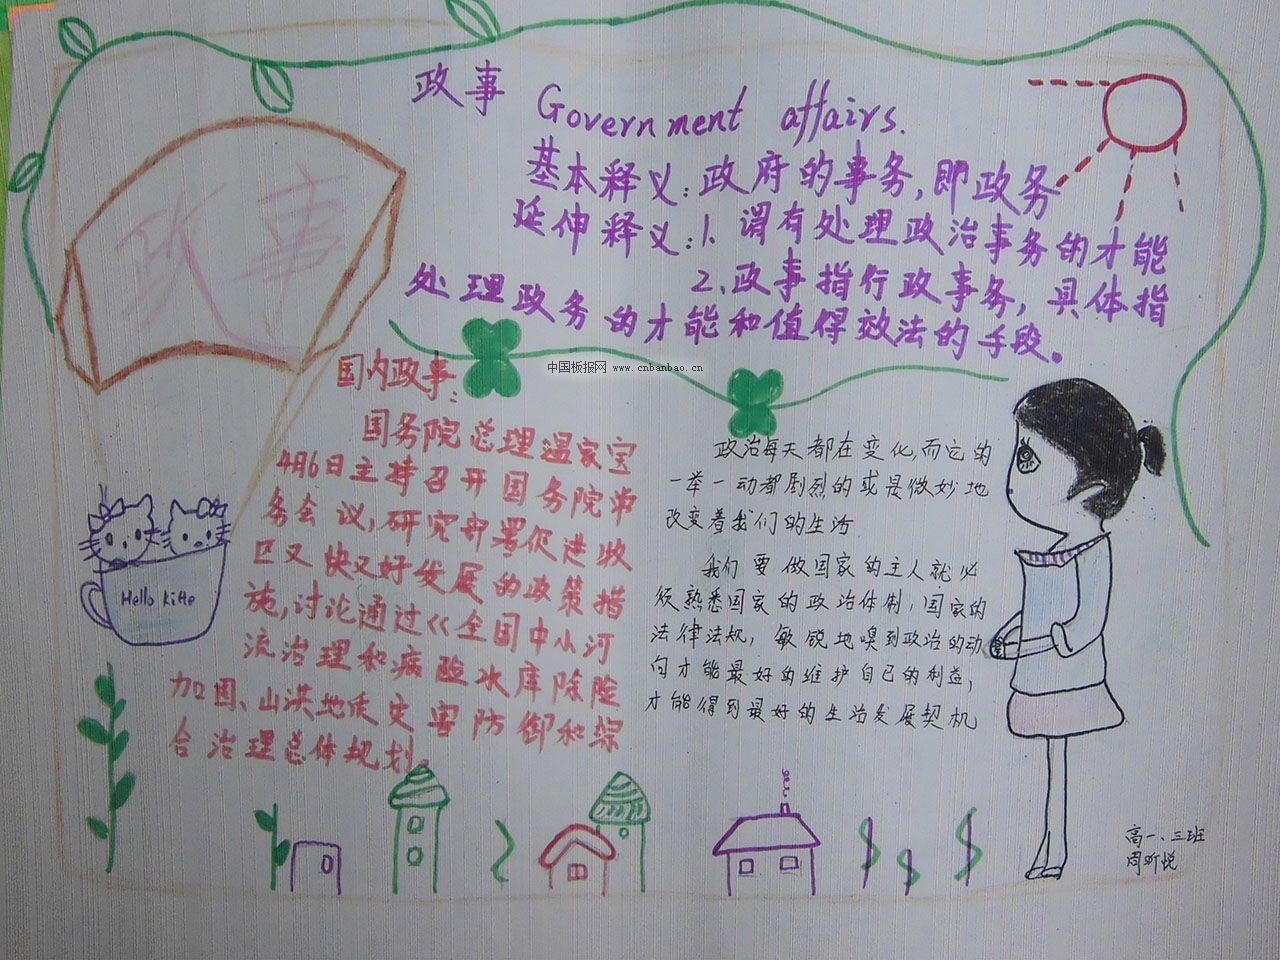 政事
政事 Government affairs.
基本释义:政府的事务,即政务
延伸释义:1、谓有处理政治事务的才能
2、政事指行政事务,具体指
处理政务的才能和值得效法的手段。
中国板报网 www.cnbanbao.cn
国内政事:
国务院总理温家宝
4月6日主持召开国务院常
务会议,研究部署促进牧
区又快又好发展的政策措
施,讨论通过《全国中小河
流治理和病险水库除险
加固、山洪地质灾害防御和综
合治理总体规划。
政治每天都在变化,而它的
一举一动都剧烈的或是微妙地
改变着我们的生活
我们要做国家的主人就必
须熟悉国家的政治体制,国家的
法律法规,敏锐地嗅到政治的动
向才能最好的维护自己的利益,
才能得到最好的生活发展契机
Hello Kitte
高一、三班
周昕悦